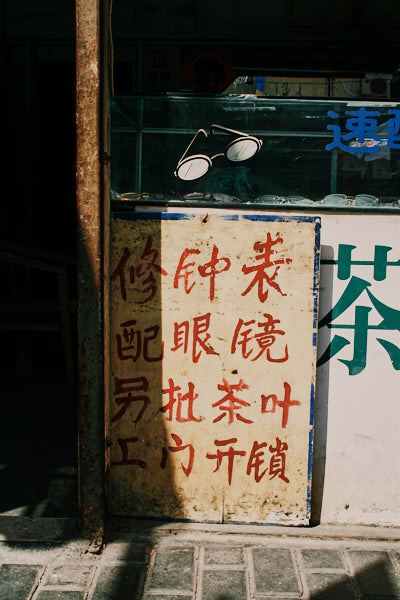 速配
修钟表
配眼镜
另批茶叶
工门开锁
茶